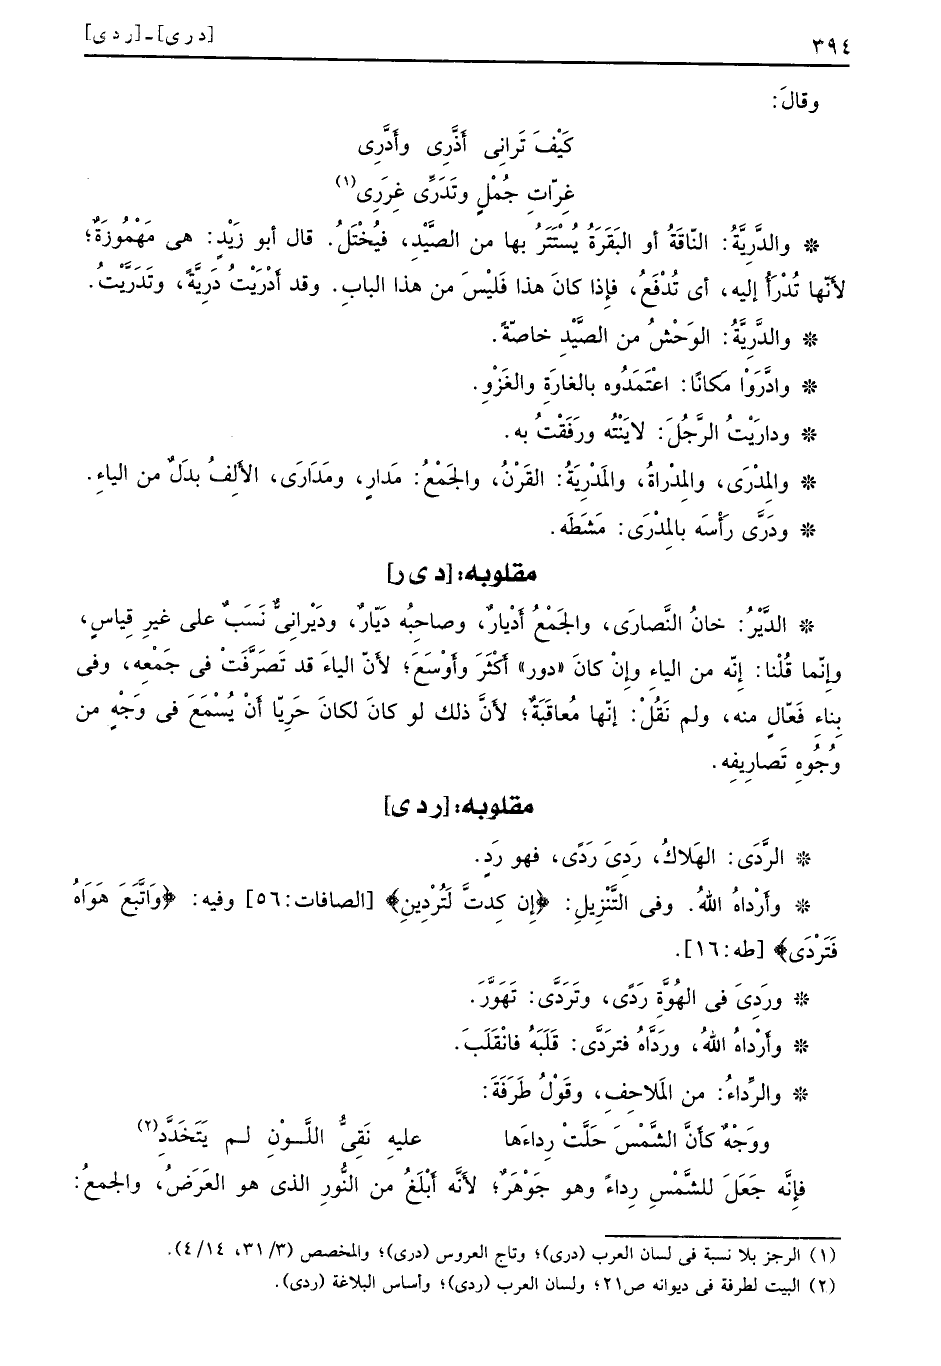 ٣٩٤ [درى] ـ [ردى]
وقالَ:
كَيْفَ تَرانِى أذَّرِى وأدَّرِى
غِرّاتِ جُمْلٍ وتَدَرَّى غِرَرِى(١)
* والدَّرِيَّةُ: النّاقَةُ أو البَقَرَةُ يُسْتَتَرُ بها من الصَّيْدِ، فيُخْتَلُ. قال أبو زَيْدٍ: هى مَهْمُوزَةٌ؛
لأنّها تُدْرَأُ إليه، أى تُدْفَعُ، فإذا كانَ هذا فَلَيْسَ من هذا الباب. وقد أدْرَيْتُ دَرِيَّةً، وتَدَرَّيْتُ.
* والدَّرِيَّةُ: الوَحْشُ من الصَّيْدِ خاصّةً.
* وادَّرَوْا مَكانًا: اعْتَمَدُوه بالغارَةِ والغَزْوِ.
* ودارَيْتُ الرَّجُلَ: لايَنْتُه ورَفَقْتُ به.
* والمِدْرَى، والمِدْراةُ، والمَدْرِيَةُ: القَرْنُ، والجَمْعُ: مَدارٍ، ومَدَارَى، الألفُ بدَلٌ من الياءِ.
* ودَرَّى رَأْسَه بالمِدْرَى: مَشَطَه.
مقلوبه: [دىر]
* الدَّيْرُ: خانُ النَّصارَى، والجَمْعُ أدْيارٌ، وصاحِبُه دَيّارٌ، ودَيْرانِىٌّ نَسَبٌ على غيرِ قياسٍ،
وإنّما قُلْنا: إنّه من الياءِ وإنْ كانَ «دور» أكْثَرَ وأوْسَعَ؛ لأنّ الياءَ قد تَصَرَّفَتْ فى جَمْعِه، وفى
بناءِ فَعّالٍ منه، ولم نَقُلْ: إنّها مُعاقَبَةٌ؛ لأنَّ ذلك لو كانَ لكانَ حَرِيّا أنْ يُسْمَعَ فى وَجْهٍ من
وُجُوهِ تَصارِيفِه.
مقلوبه: [ردى]
* الرَّدَى: الهَلاكُ، رَدِىَ رَدًى، فهو رَدٍ.
* وأرْداهُ اللهُ. وفى التَّنْزِيلِ: ﴿إِن كِدتَّ لَتُرْدِينِ﴾ [الصافات: ٥٦] وفيه: ﴿وَاتَّبَعَ هَوَاهُ
فَتَرْدَى﴾ [طه: ١٦].
* ورَدِىَ فى الهُوَّةِ رَدًى، وتَرَدَّى: تَهَوَّرَ.
* وأرْداهُ اللهُ، ورَدَّاهُ فتردَّى: قَلَبَهُ فانْقَلَبَ.
* والرِّداءُ: من المَلاحِفِ، وقَوْلُ طَرَفَةَ:
ووَجْهٌ كأنَّ الشَّمْسَ حَلَّتْ رِداءَها عليهِ نَقِىُّ اللَّوْنِ لم يَتَخَدَّدِ(٢)
فإنَّه جَعَلَ للشَّمْسِ رِداءً وهو جَوْهَرٌ؛ لأنَّه أبْلَغُ من النُّورِ الذى هو العَرَضُ، والجمعُ:
(١) الرجز بلا نسبة فى لسان العرب (درى)؛ وتاج العروس (درى)؛ والمخصص (٣١/٣، ٤/١٤).
(٢) البيت لطرفة فى ديوانه ص٢١؛ ولسان العرب (ردى)؛ وأساس البلاغة (ردى).